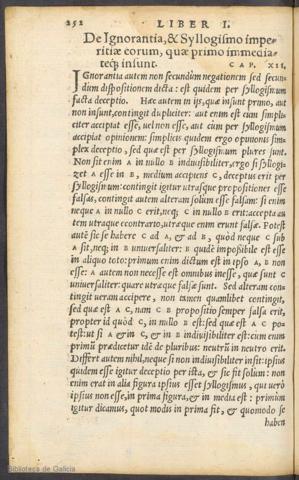 252 LIBER I.
De Ignorantia, & Syllogismo impe-
ritiæ eorum, quæ primo immedia-
teq; insunt. CAP. XII.
IGnorantia autem non secundùm negationem sed secun-
dùm dispositionem dicta: est quidem per syllogismum
facta deceptio. Hæc autem in ijs, quæ insunt primo, aut
non insunt, contingit dupliciter: aut enim est cum simpli-
citer acceptat esse, uel non esse, aut cum per syllogismum
accipiat opinionem: simplicis quidem ergo opinionis sim-
plex deceptio, sed quæ est per syllogismum plures sunt.
Non sit enim A in nullo B indiuisibiliter, ergo si syllogi-
zet A esse in B, medium accipiens C, deceptus erit per
syllogismum: contingit igitur utrasque propositiones esse
falsas, contingit autem alteram solum esse falsam: si enim
neque A in nullo C erit, neq; C in nullo B erit: accepta au
tem utraque econtrario, utræque enim erunt falsæ. Potest
autē sic se habere C ad A, & ad B, quòd neque C sub
A sit, neq; in B uniuersaliter: B quidē impoßibile est esse
in aliquo toto: primum enim dictum est in ipso A, B non
esse: A autem non necesse est omnibus inesse, quæ sunt C
uniuersaliter: quare utræque falsæ sunt. Sed alteram con-
tingit ueram accipere, non tamen quamlibet contingit,
sed quæ est A C, nam C B propositio semper falsa erit,
propter id quòd C, in nullo B est: sed quæ est A C po-
test: ut si A & in C, & in B indiuisibiliter est: cum enim
primū prædicetur idē de pluribus: neutrū in neutro erit.
Differt autem nihil, neque si non indiuisibiliter insit: ipsius
quidem esse igitur deceptio per ista, & sic fit solum: non
enim erat in alia figura ipsius esse syllogismus, qui uerò
ipsius non esse, in prima figura, & in media est: primùm
igitur dicamus, quot modis in prima fit, & quomodo se
haben
Biblioteca de Galicia